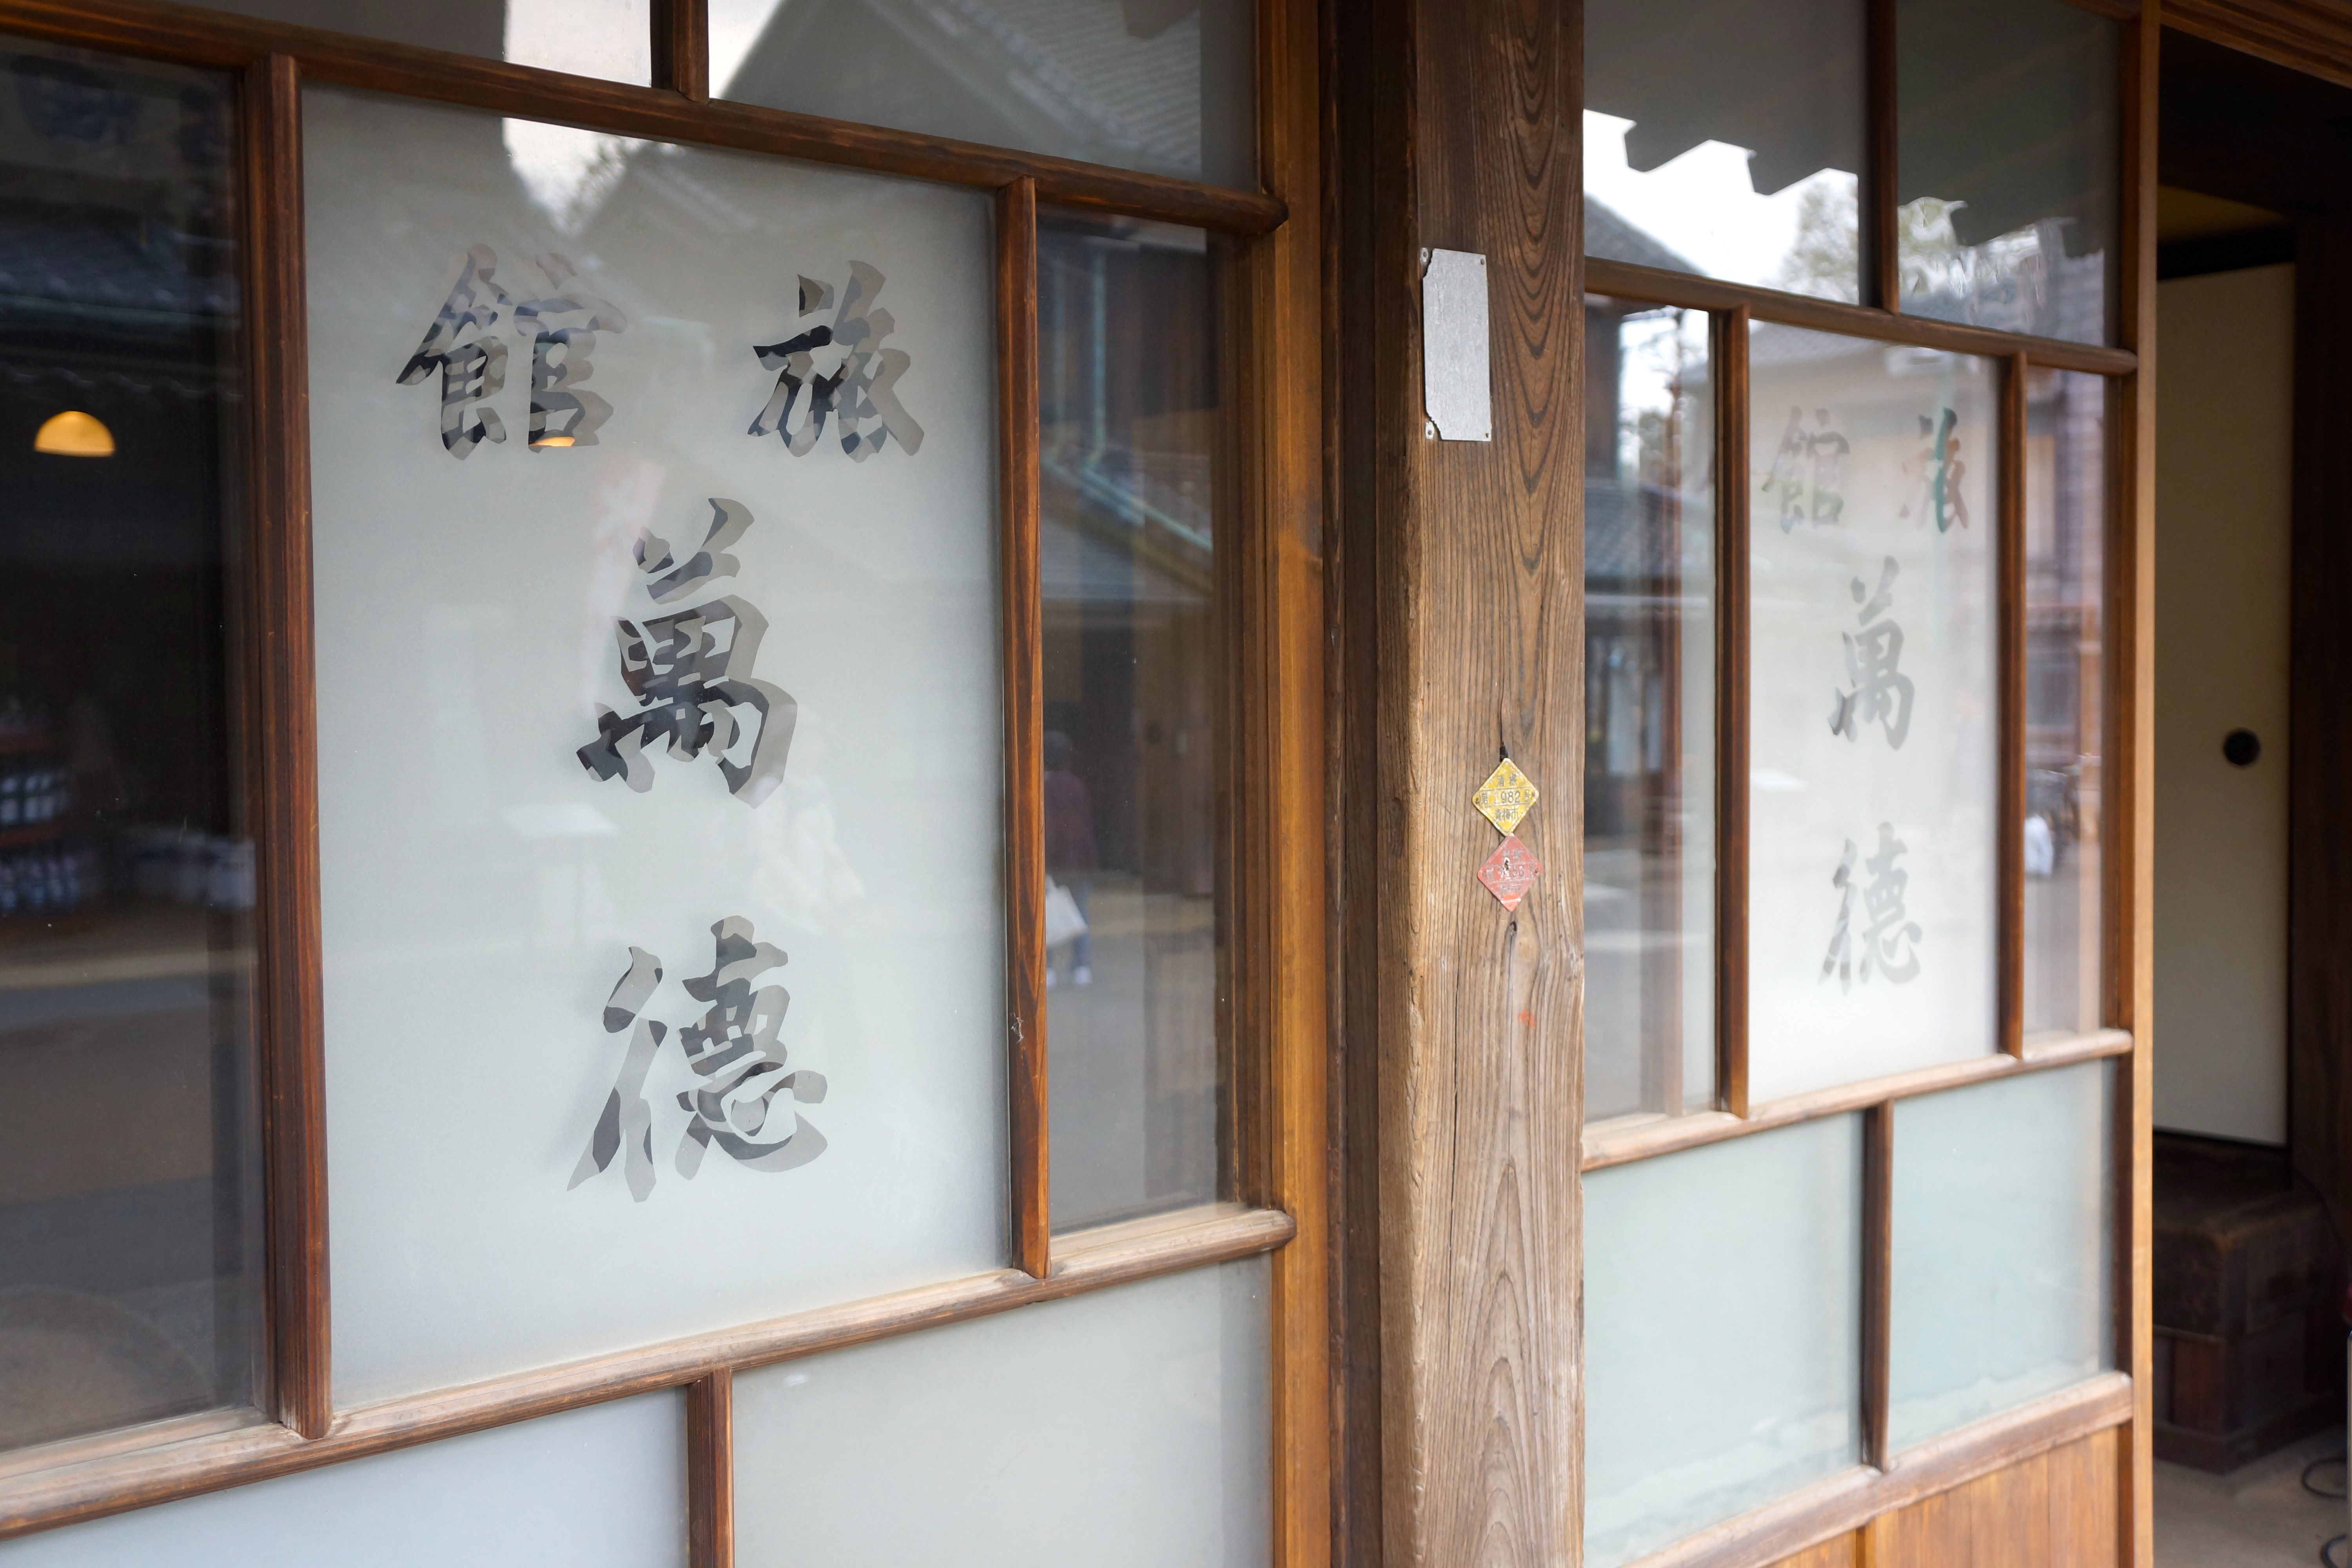 旅館
萬
德
旅館
萬
德
982